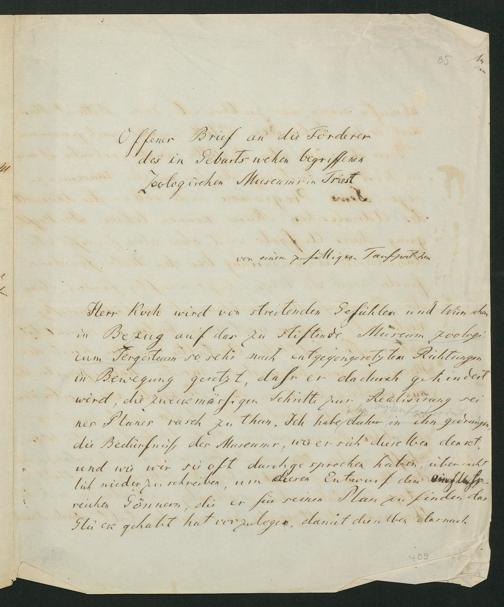 85
Offener Brief an die Förderer
des in Geburtswehen begriffenen
Zoologischen Museums in Triest
von einem zufälligen Taufpathen
Herr Koch wird von streitenden Gefühlen und
in Bezug auf das zu stiftende Museum zoologi
cum Tergestinum so sehr nach entgegengesetzten Richtungen
in Bewegung gesetzt, daß er dadurch gehindert
wird, die zweckmäßigen Schritte zur Realisirung sei
nes Planes rasch zu thun. Ich habe daher in ihn gedrungen
die Bedürfniß des Museums, wie er sich dieselben denkt,
und wie wir sie oft durchgesprochen haben, übersicht
lich niederzuschreiben, um diesen Entwurf den einfluß
reichen Gönnern, die er für seinen Plan zu finden das
Glück gehabt hat vorzulegen, damit dieselben darnach
409